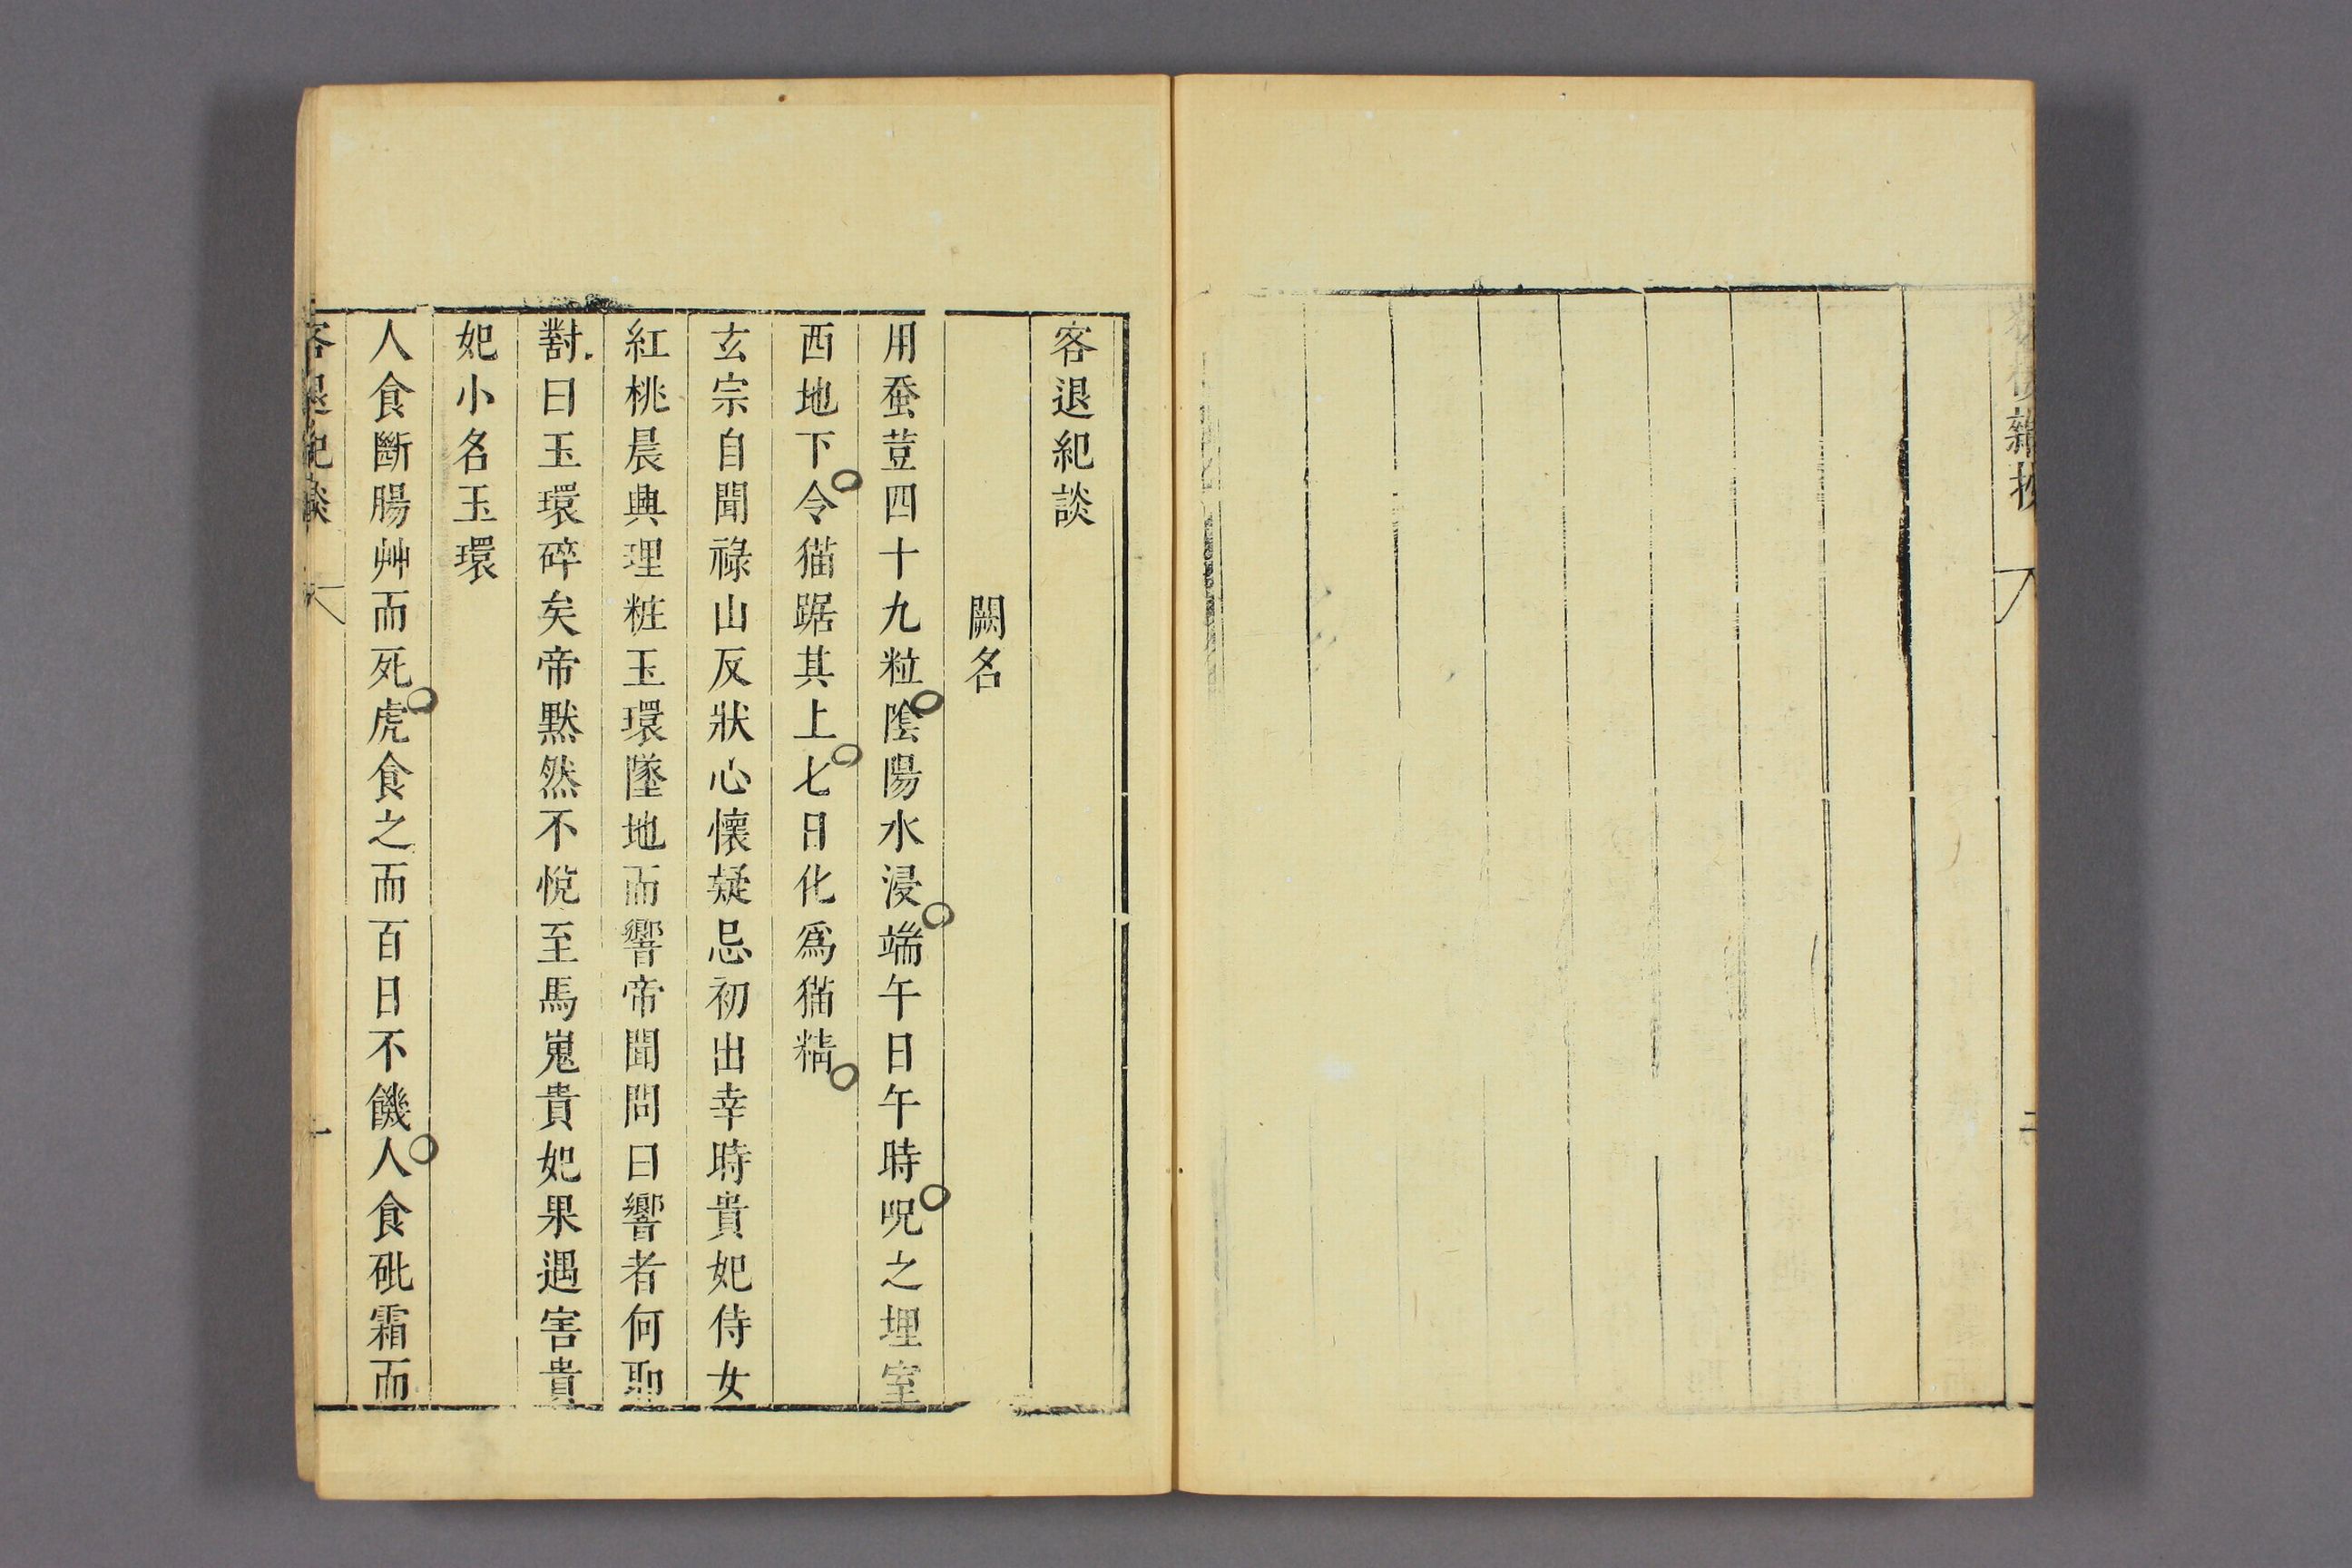 雜抄
二
客退紀談
闕名
用蚕荳四十九粒陰陽水浸端午日午時呪之埋室
西地下令猫踞其上七日化爲猫精
玄宗自聞祿山反狀心懷疑忌初出幸時貴妃侍女
紅桃晨興理粧玉環墜地而響帝聞問曰響者何聖
對曰玉環碎矣帝默然不悅至馬嵬貴妃果遇害貴
妃小名玉環
人食斷腸艸而死虎食之而百日不饑人食砒霜而
客退紀談
一